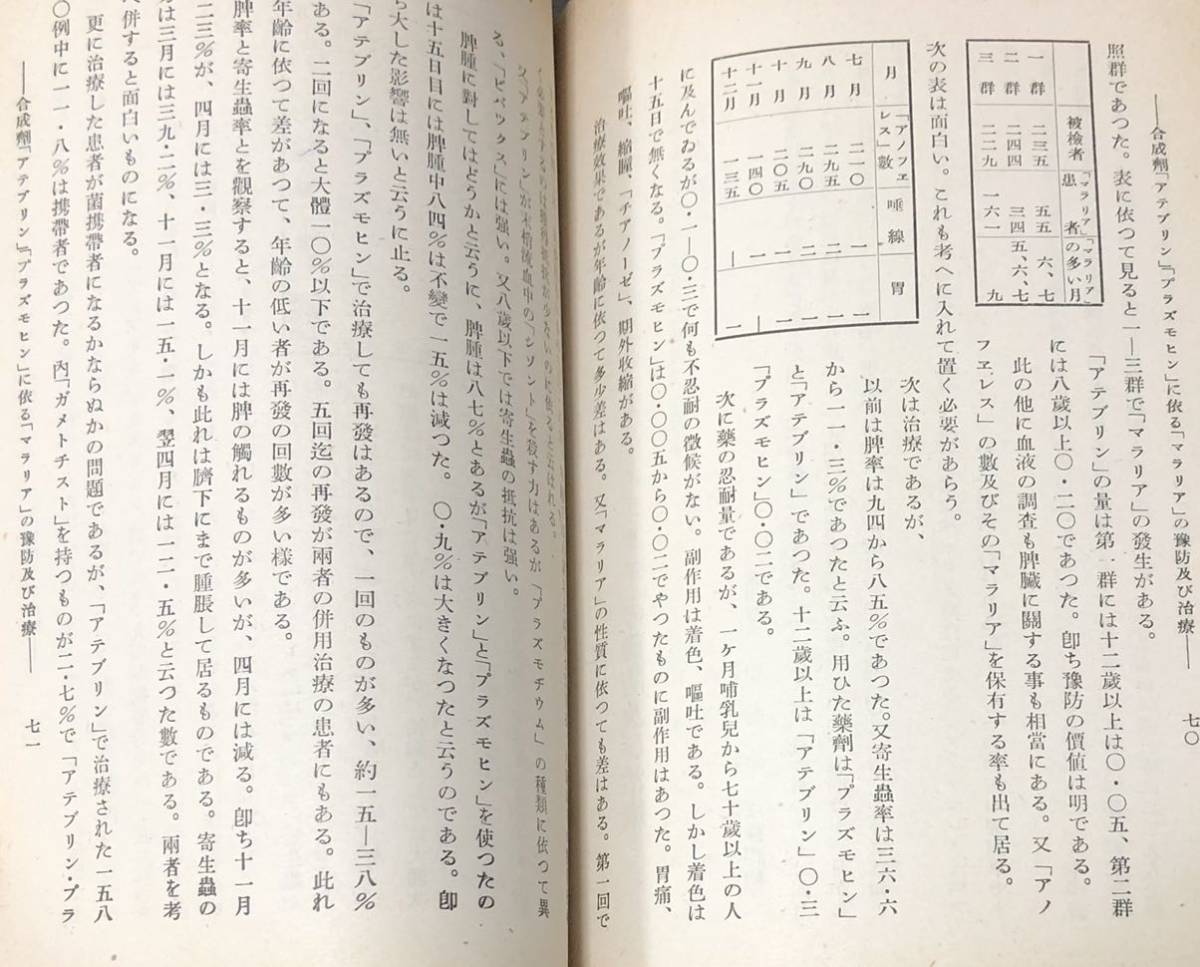 ——合成劑「アテブリン」「プラズモヒン」に依る「マラリア」の豫防及び治療——　七〇
照群であつた。表に依つて見ると一—三群で「マラリア」の發生がある。
被檢者　「マラリア」患者　「マラリア」の多い月
一群　二三五　五五　六、七
二群　二四四　三四　五、六、七
三群　二二九　一六一　九
「アテブリン」の量は第一群には十二歲以上は〇・〇五、第二群
には八歲以上〇・二〇であつた。卽ち豫防の價値は明である。
此の他に血液の調査も脾臟に關する事も相當にある。又「アノ
フヱレス」の數及びその「マラリア」を保有する率も出て居る。
次の表は面白い。これも考へに入れて置く必要があらう。
月　「アノフヱレス」數　唾線　胃
七月　二一〇　一　一
八月　二九五　一　一
九月　二九〇　一　一
十月　二〇五　一　｜
十一月　一四〇　一　一
十二月　一三五　｜　一
次は治療であるが、
以前は脾率は九四から八五％であつた。又寄生蟲率は三六・六
から一一・三％であつたと云ふ。用ひた藥劑は「プラズモヒン」
と「アテブリン」であつた。十二歲以上は「アテブリン」〇・三
「プラズモヒン」〇・〇二である。
次に藥の忍耐量であるが、一ケ月哺乳兒から七十歲以上の人
に及んでゐるが〇・一—〇・三で何も不忍耐の徵候がない。副作用は着色、嘔吐である。しかし着色は
十五日で無くなる。「プラズモヒン」は〇・〇〇五から〇・〇二でやつたものに副作用はあつた。胃痛、
嘔吐、縮瞳、「チアノーゼ」、期外收縮がある。
治療效果であるが年齡に依つて多少差はある。又「マラリア」の性質に依つても差はある。第一回で
するのは獲得抵抗が少ないのに依るとは云はれる。
又「アテブリン」が末梢流血中の「シゾント」を殺す力はあるが「プラズモヂウム」の種類に依つて異
る、「ビバツクス」には强い。又八歲以下では寄生蟲の抵抗は强い。
脾腫に對してはどうかと云うに、脾腫は八七％とあるが「アテブリン」と「プラズモヒン」を使つたの
は十五日目には脾腫中八四％は不變で一五％は減つた。〇・九％は大きくなつたと云うのである。卽
ら大した影響は無いと云うに止る。
「アテブリン」、「プラズモヒン」で治療しても再發はあるので、一回のものが多い、約一五—三八％
ある。二回になると大體一〇％以下である。五回迄の再發が兩者の併用治療の患者にもある。此れ
年齡に依つて差があつて、年齡の低い者が再發の回數が多い樣である。
脾率と寄生蟲率とを觀察すると、十一月には脾の觸れるものが多いが、四月には減る。卽ち十一月
二三％が、四月には三・三％となる。しかも此れは臍下にまで腫脹して居るものである。寄生蟲の
は三月には三九・二％、十一月には一五・一％、翌四月には一二・五％と云つた數である。兩者を考
併すると面白いものになる。
更に治療した患者が菌携帶者になるかならぬかの問題であるが、「アテブリン」で治療された一五八
〇例中に一一・八％は携帶者であつた。內「ガメトチスト」を持つものが二・七％で「アテブリン・プラ
——合成劑「アテブリン」「プラズモヒン」に依る「マラリア」の豫防及び治療——　七一